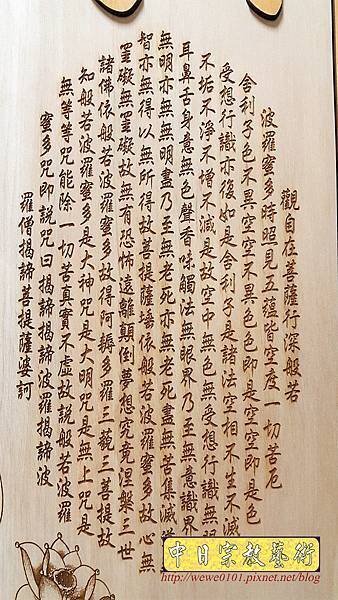 觀自在菩薩行深般若
波羅蜜多時照見五蘊皆空度一切苦厄
舍利子色不異空空不異色色即是空空即是色
受想行識亦復如是舍利子是諸法空相不生不滅
不垢不淨不增不減是故空中無色無受想行識無眼
耳鼻舌身意無色聲香味觸法無眼界乃至無意識界
無明亦無無明盡乃至無老死亦無老死盡無苦集滅
智亦無得以無所得故菩提薩埵依般若波羅蜜多故心無
罣礙無罣礙故無有恐怖遠離顛倒夢想究竟涅槃三世
諸佛依般若波羅蜜多故得阿耨多羅三藐三菩提故
知般若波羅蜜多是大神咒是大明咒是無上咒是
無等等咒能除一切苦真實不虛故說般若波羅
蜜多咒即說咒曰揭諦揭諦波羅揭諦波
羅僧揭諦菩提薩婆訶
中日宗教藝術
http://wewe0101.pixnet.net/blog